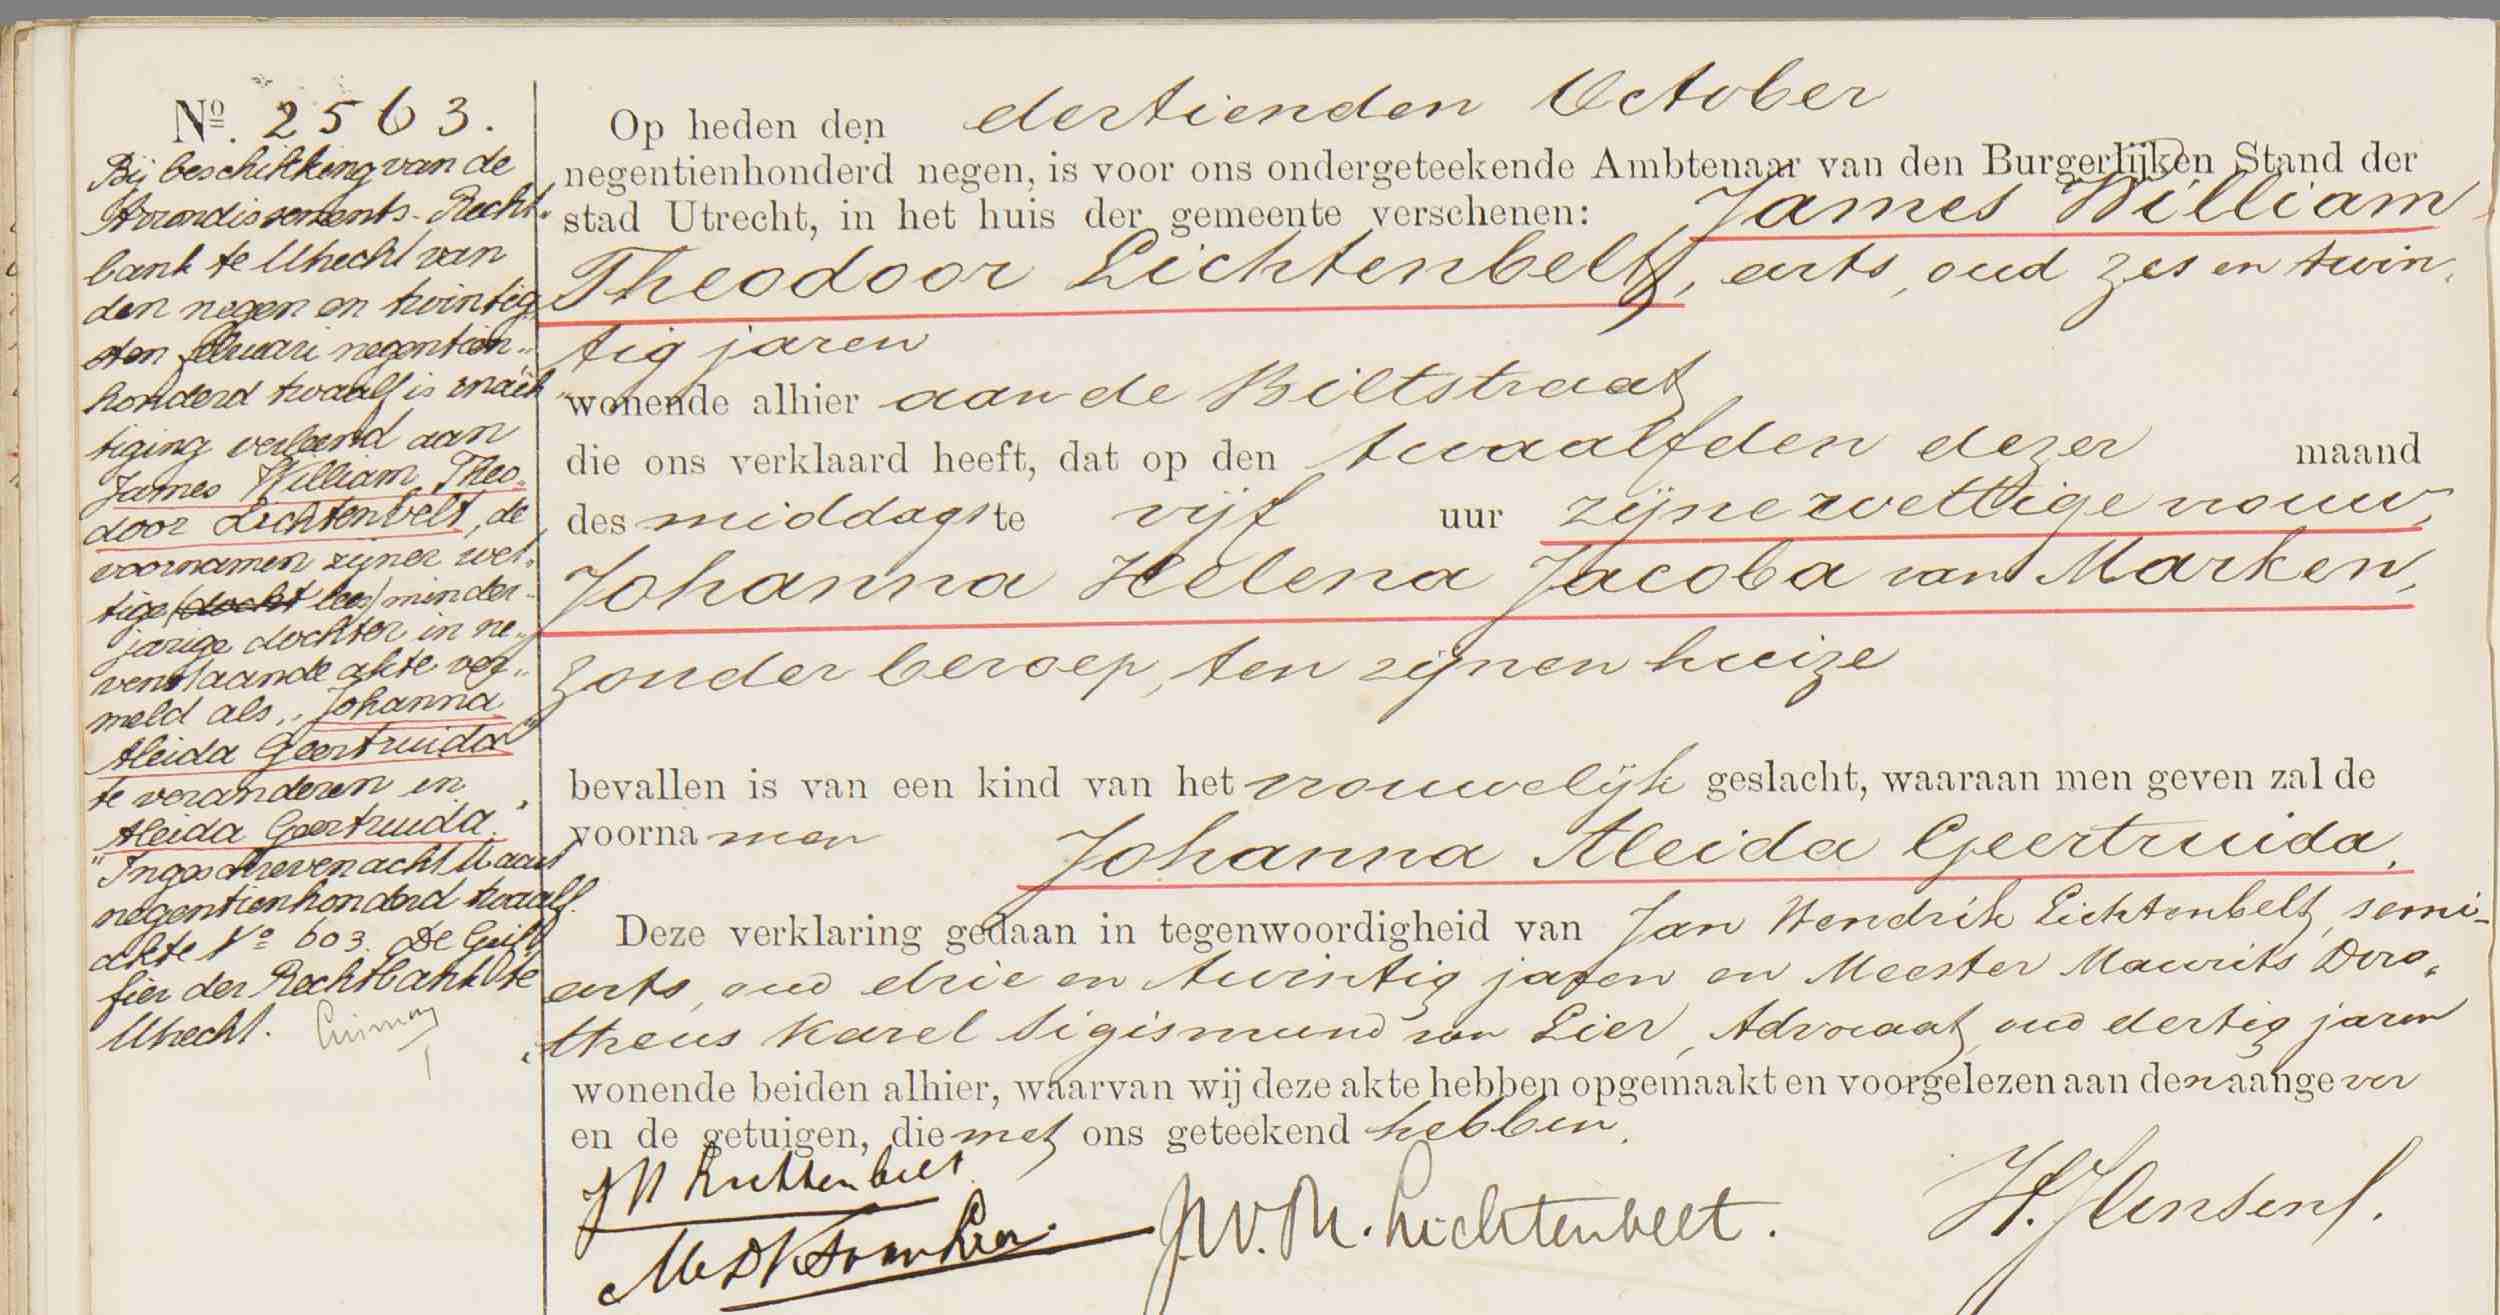 Nº. 2563.
Bij beschikking van de
Arrondissements-Recht-
bank te Utrecht van
den negen en twintig
sten februari negentien-
honderd twaalf is mach
tiging verleend aan
James William Theo-
door Lichtenbelt, de
voornamen zijner wet-
tige (docht lees) minder-
jarige dochter in ne-
venstaande akte ver-
meld als „Johanna
Aleida Geertruida"
te veranderen in
Aleida Geertruida."
"Ingeschreven acht Maart
negentienhonderd twaalf.
akte Nº 603. De Grif
fier der Rechtbank te
Utrecht.
Op heden den dertienden October
negentienhonderd negen, is voor ons ondergeteekende Ambtenaar van den Burgerlijken Stand der
stad Utrecht, in het huis der gemeente verschenen: James William
Theodoor Lichtenbelt, arts, oud zes en twin-
tig jaren
wonende alhier aan de Biltstraat
die ons verklaard heeft, dat op den twaalfden dezer maand
des middags te vijf uur zijne wettige vrouw,
Johanna Helena Jacoba van Marken,
zonder beroep, ten zijnen huize
bevallen is van een kind van het vrouwelijk geslacht, waaraan men geven zal de
voornamen Johanna Aleida Geertruida.
Deze verklaring gedaan in tegenwoordigheid van Jan Hendrik Lichtenbelt, semi-
arts, oud drie en twintig jaren en Meester Maurits Doro-
theus Karel Sigismund van Lier, Advocaat, oud dertig jaren
wonende beiden alhier, waarvan wij deze akte hebben opgemaakt en voorgelezen aan den aangever
en de getuigen, die met ons geteekend hebben.
JH Lichtenbelt
MDKS van Lier.
J.W.Th. Lichtenbelt.